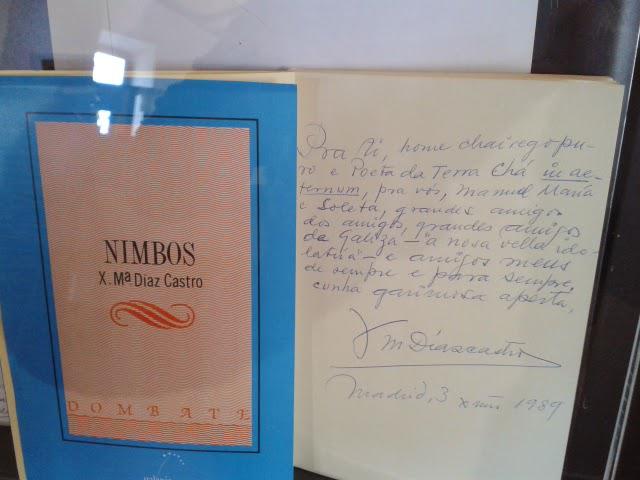 NIMBOS
X. Mª Díaz Castro
DOMBATE
Pra ti, home chairego pu-
ro e Poeta da Terra Chá in ae-
ternum, pra vós, Manuel María
e Saleta, grandes amigos
dos amigos, grandes amigos
de Galiza —a nosa vella ido-
latría— e amigos meus
de sempre e para sempre,
cunha garimosa aperta,
X M Díazcastro
Madrid, 3 1989